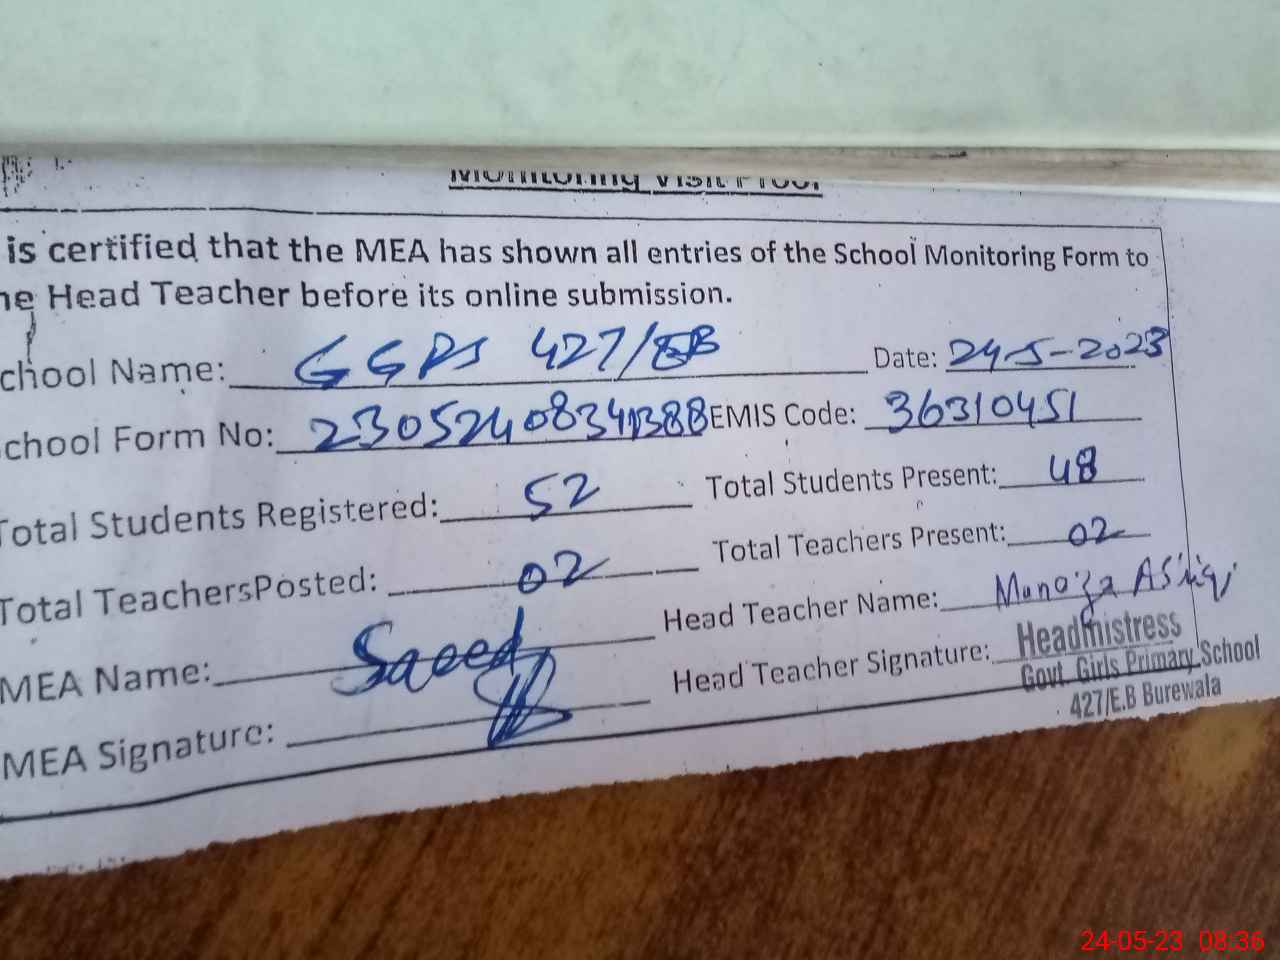 Monitoring Visit Proof
is certified that the MEA has shown all entries of the School Monitoring Form to
he Head Teacher before its online submission.
chool Name: GGPS 427/EB Date: 24-5-2023
chool Form No: 23052408341388 EMIS Code: 36310451
Total Students Registered: 52 Total Students Present: 48
Total TeachersPosted: 02 Total Teachers Present: 02
MEA Name: Saeed Head Teacher Name: Munaza Ashiq
MEA Signature: Head Teacher Signature:
Headmistress
Govt. Girls Primary School
427/E.B Burewala
24-05-23 08:36